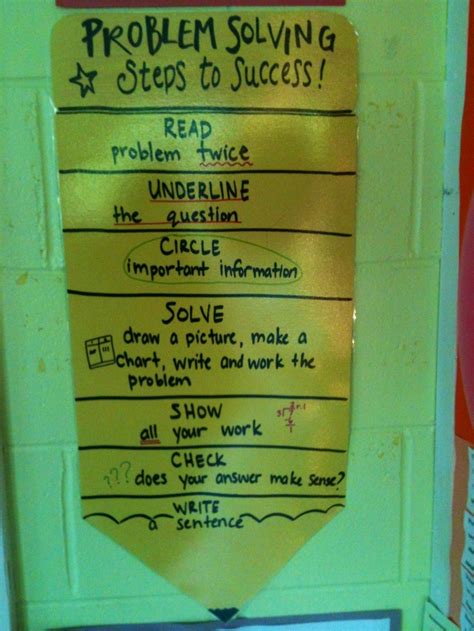 PROBLEM SOLVING
Steps to Success!
READ
problem twice
UNDERLINE
the question
CIRCLE
important information
SOLVE
draw a picture, make a
chart, write and work the
problem
SHOW
all your work
CHECK
??? does your answer make sense?
WRITE
a sentence